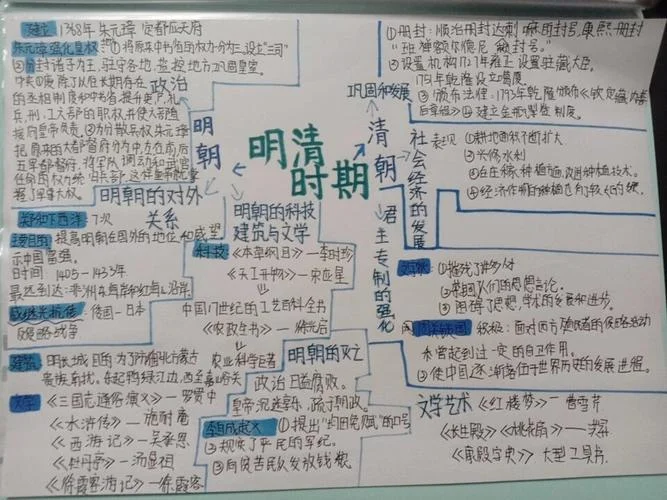 明清时期
建立 1368年 朱元璋 定都应天府
朱元璋强化皇权 ①将原来中书省的权力分为三,设立"三司"
②分封诸子为王,驻守各地,监控地方巩固皇室。
政治
中央:①废除了以往长期存在
的丞相制度和中书省,提升吏户、礼
兵、刑、工六部的职权,并使六部直
接向皇帝负责。②分散兵权,朱元璋
把原来的大都督府分为中左右前后
五军都督府,将军队调动和武官
任命的权力统归兵部,这样皇帝就掌
握了军事大权。
明朝
明朝的对外
关系
郑和下西洋 7次
主要目的:提高明朝在国外的地位和威望
示中国富强。
时间 1405-1433年
最远到达:非洲东海岸和红海沿岸。
戚继光抗倭:倭国—日本
反侵略战争
建筑 明长城 目的:为了防御北方蒙古
贵族南扰。东起鸭绿江边,西至嘉峪关
文学 《三国志通俗演义》—罗贯中
《水浒传》—施耐庵
《西游记》—吴承恩
《牡丹亭》—汤显祖
《徐霞客游记》—徐霞客
明朝的科技
建筑与文学
科技 《本草纲目》—李时珍
《天工开物》—宋应星
中国17世纪的工艺百科全书
《农政全书》—徐光启
农业科学巨著
明朝的灭亡
政治日益腐败。
皇帝沉迷享乐,疏于朝政。
李自成起义 ①提出"均田免赋"的口号
②规定了平民的军纪。
③向贫苦民众发放钱粮
清朝
巩固和发展
①册封:顺治册封达赖喇嘛封号,康熙册封
"班禅额尔德尼"封号。
②设置机构 1727年雍正设置驻藏大臣。
1751年乾隆设立噶厦。
③颁布法律:1793年乾隆颁布《钦定藏内善
后章程》④建立金瓶掣签制度。
社会经济的发展
表现 ①耕地面积不断扩大
②兴修水利
④经济作物的种植也有较大的发展
君主专制的强化
①摧残了许多人才
②禁锢人们的思想言论。
③阻碍了思想、学术的发展和进步。
闭关锁国 积极:面对西方殖民者的侵略活动
本曾起到过一定的自卫作用。
②使中国逐渐落伍于世界历史的发展进程。
文学艺术 《红楼梦》—曹雪芹
《长生殿》《桃花扇》—
《康熙字典》大型工具书。